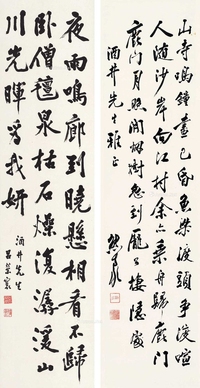 山寺鳴鐘晝已昏魚梁渡頭爭渡喧
人隨沙岸向江村余亦乘舟歸鹿門
鹿門月照開煙樹忽到龐公棲隱處
酒井先生雅正
夜雨鳴廊到曉懸相看不歸
臥僧氈泉枯石燥復潺湲山
川光暉為我妍
酒井先生
呂榮寰